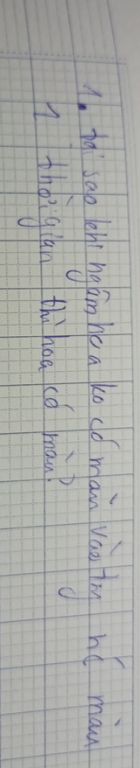 1. tại sao khi ngâm hoa ko có màu vào hc màu
1 thời gian thì hoa có màu?